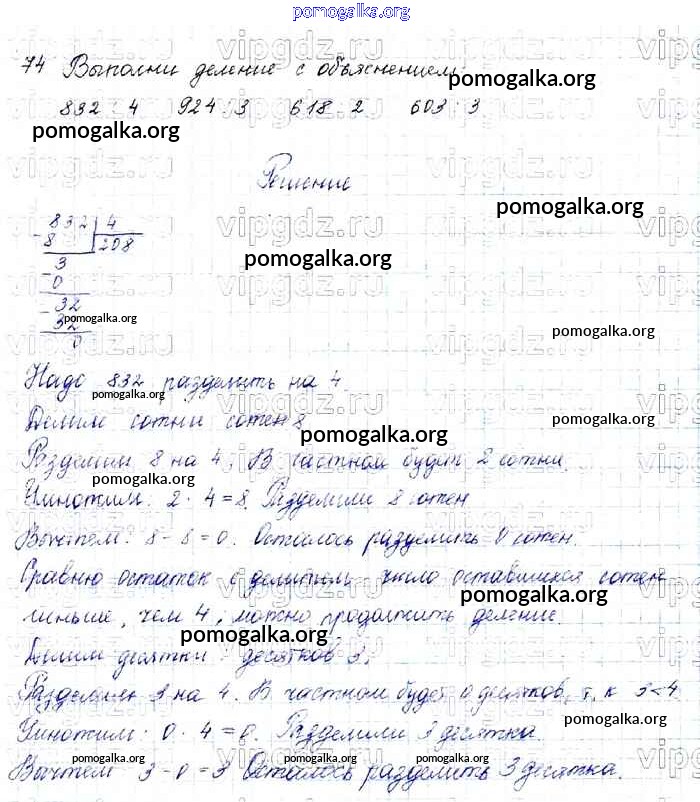 pomogalka.org
74 Выполни деление с объяснением:
pomogalka.org
832 : 4 924 : 3 618 : 2 603 : 3
pomogalka.org
Решение
pomogalka.org
832 4
- 8 208
pomogalka.org
3
- 0
- 32
pomogalka.org
32
0
pomogalka.org
Надо 832 разделить на 4.
pomogalka.org
Делим сотни сотен 8
pomogalka.org
Разделим 8 на 4. В частном будет 2 сотни.
pomogalka.org
Умножим: 2 · 4 = 8. Разделили 8 сотен
Вычтем: 8 - 8 = 0. Осталось разделить 0 сотен.
Сравню остаток с делителем число оставшихся сотен
pomogalka.org
меньше, чем 4, можно продолжить деление.
pomogalka.org
Делим десятки: десятков 3.
Разделим 3 на 4. В частном будет 0 десятков, т. к 3<4
pomogalka.org
Умножим: 0 · 4 = 0. Разделили 3 десятка.
pomogalka.org
pomogalka.org
Вычтем 3 - 0 = 3 Осталось разделить 3 десятка.
pomogalka.org